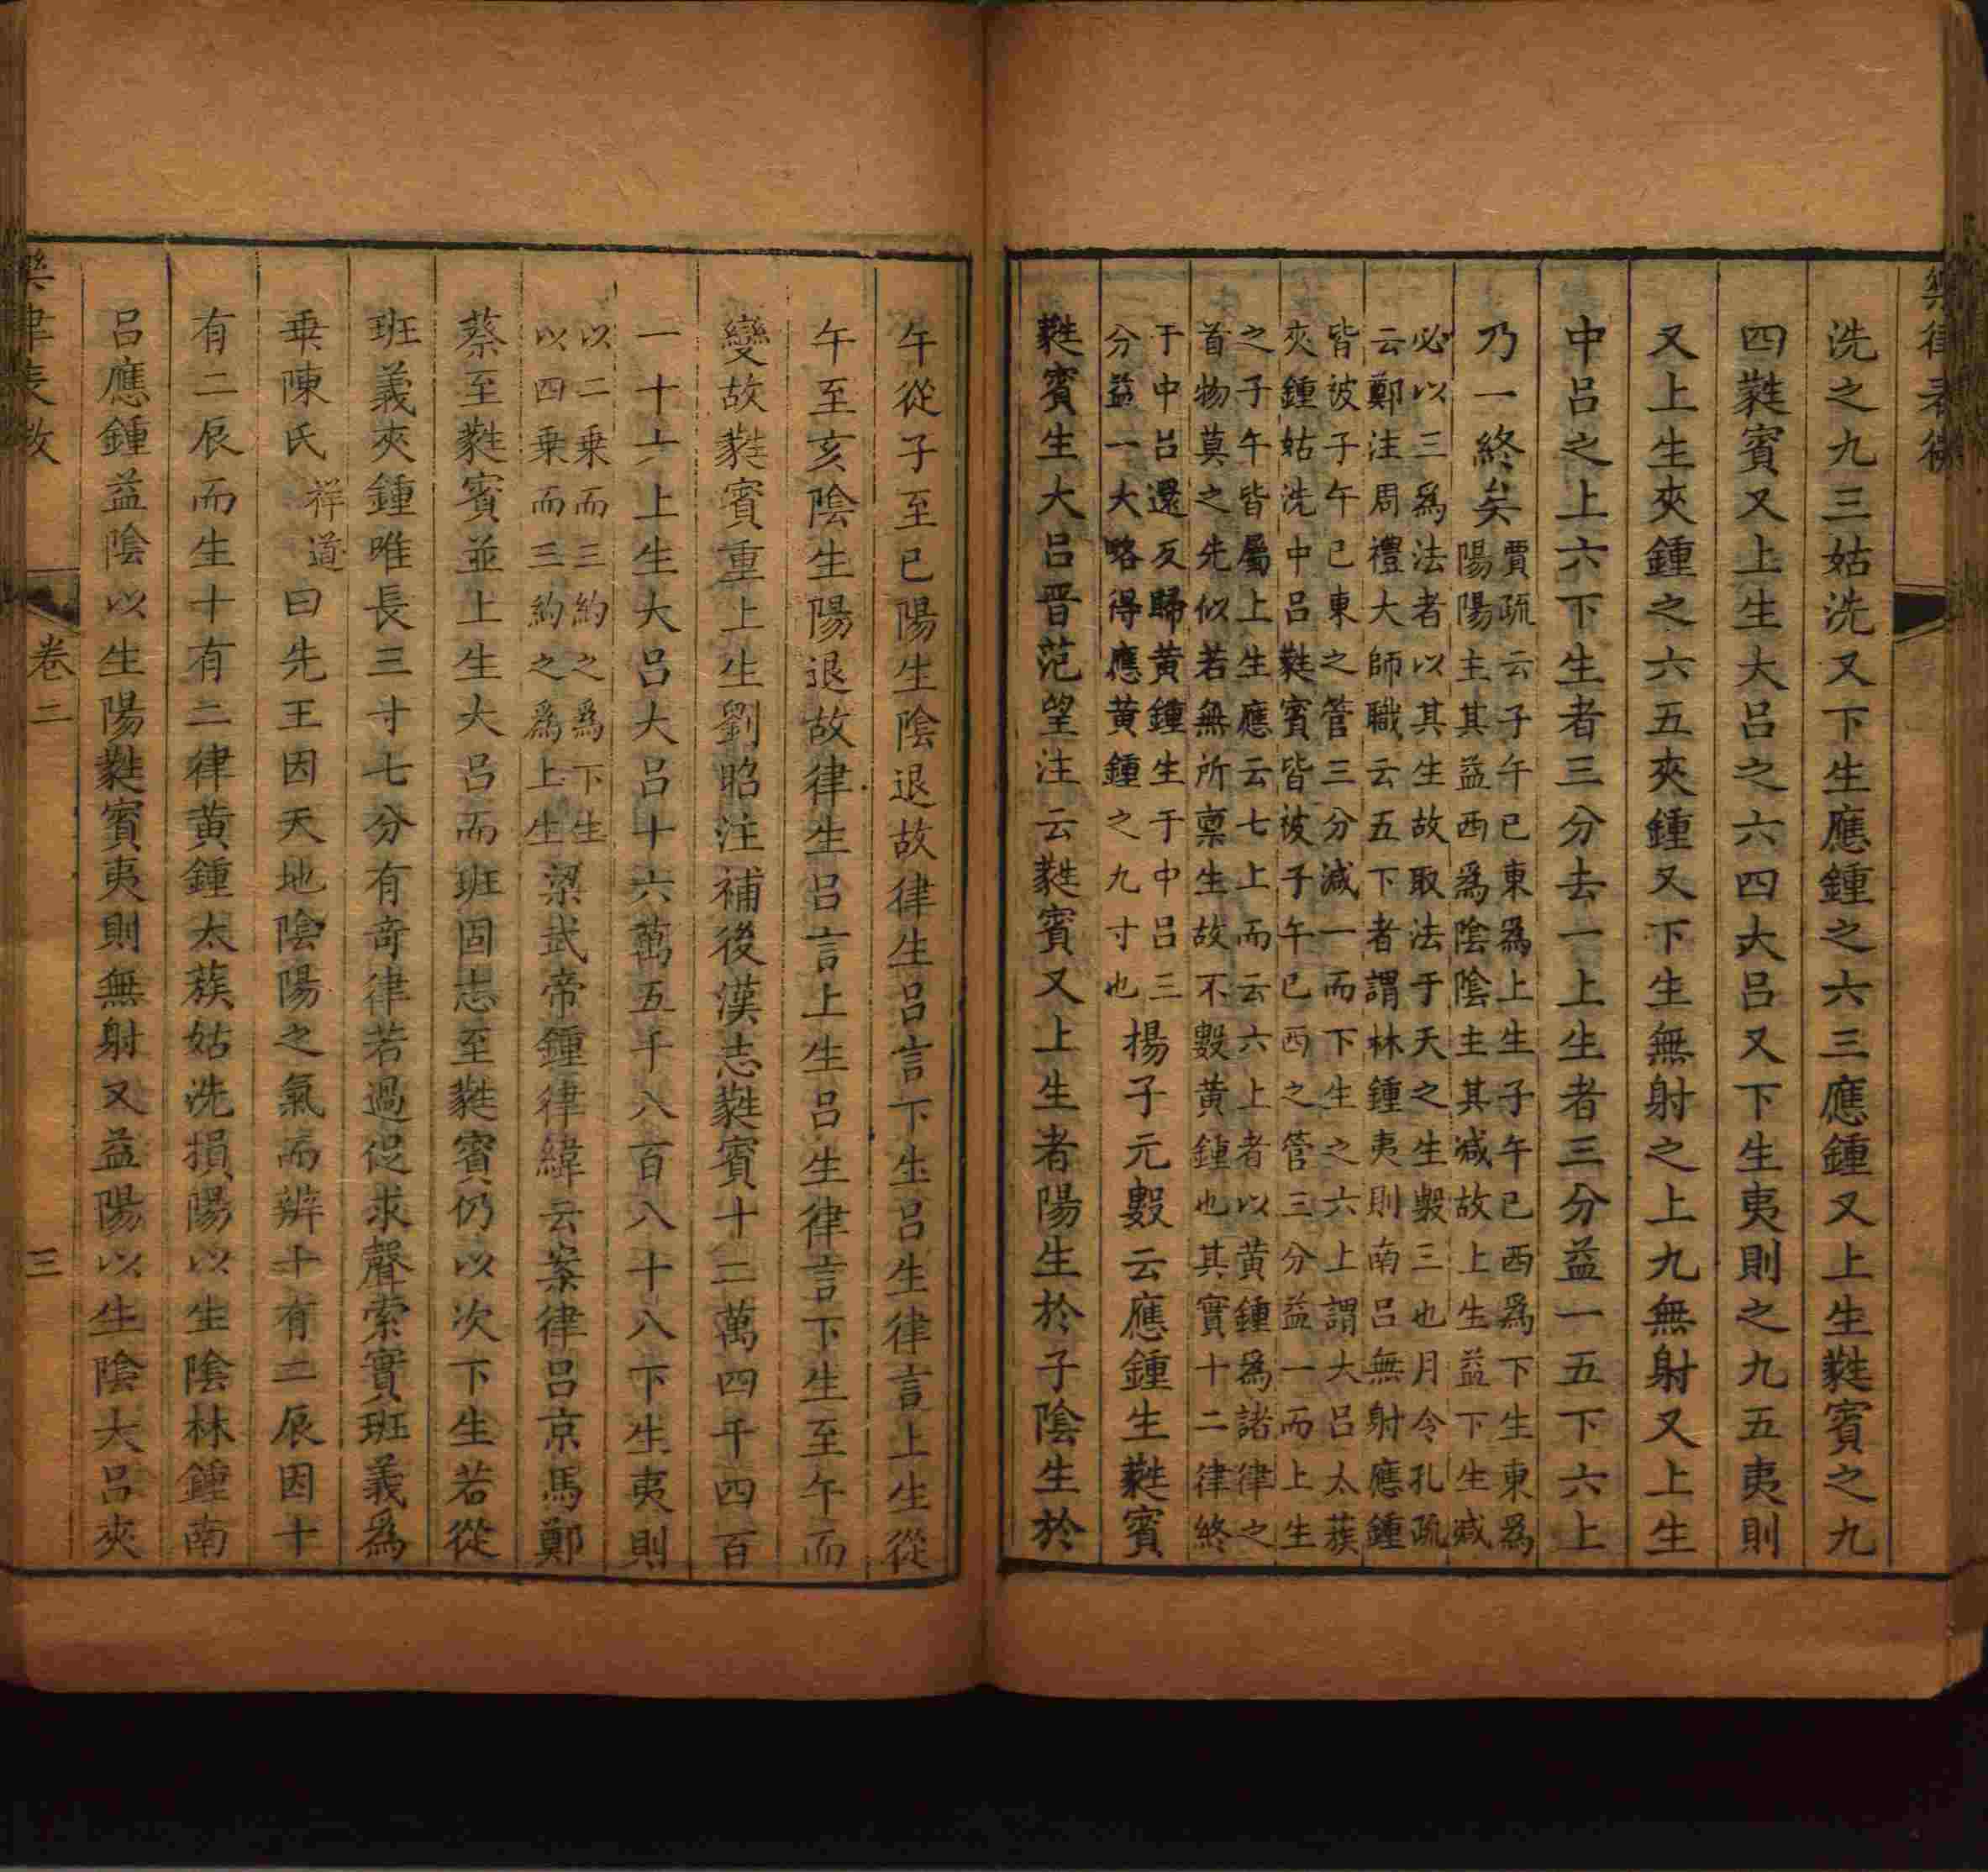 洗之九三姑洗又下生應鍾之六三應鍾又上生蕤賓之九
四蕤賓又上生大呂之六四大呂又下生夷則之九五夷則
又上生夾鍾之六五夾鍾又下生無射之上九無射又上生
中呂之上六下生者三分去一上生者三分益一五下六上
乃一終矣
賈疏云子午已東爲上生子午已西爲下生東爲
陽陽主其益西爲陰陰主其減故上生益下生減
必以三爲法者以其生故取法于天之生數三也月令孔疏
云鄭注周禮大師職云五下者謂林鍾夷則南呂無射應鍾
皆被子午已東之管三分減一而下生之六上謂大呂太蔟
夾鍾姑洗中呂蕤賓皆被子午已西之管三分益一而上生
之子午皆屬上生應云七上而云六上者以黃鍾爲諸律之
首物莫之先似若無所稟生故不數黃鍾也其實十二律終
于中呂還反歸黃鍾生于中呂三
分益一大略得應黃鍾之九寸也
揚子元數云應鍾生蕤賓
蕤賓生大呂晉范望注云蕤賓又上生者陽生於子陰生於
午從子至巳陽生陰退故律生呂言下生呂生律言上生從
午至亥陰生陽退故律生呂言上生呂生律言下生至午而
變故蕤賓重上生劉昭注補後漢志蕤賓十二萬四千四百
一十六上生大呂大呂十六萬五千八百八十八下生夷則
以二乗而三約之爲下生
以四乗而三約之爲上生
梁武帝鍾律緯云案律呂京馬鄭
蔡至蕤賓並上生大呂而班固志至蕤賓仍以次下生若從
班義夾鍾唯長三寸七分有奇律若過促求聲索實班義爲
乗陳氏
祥道
曰先王因天地陰陽之氣而辨十有二辰因十
有二辰而生十有二律黃鍾太蔟姑洗損陽以生陰林鍾南
呂應鍾益陰以生陽蕤賓夷則無射又益陽以生陰大呂夾
卷二
三